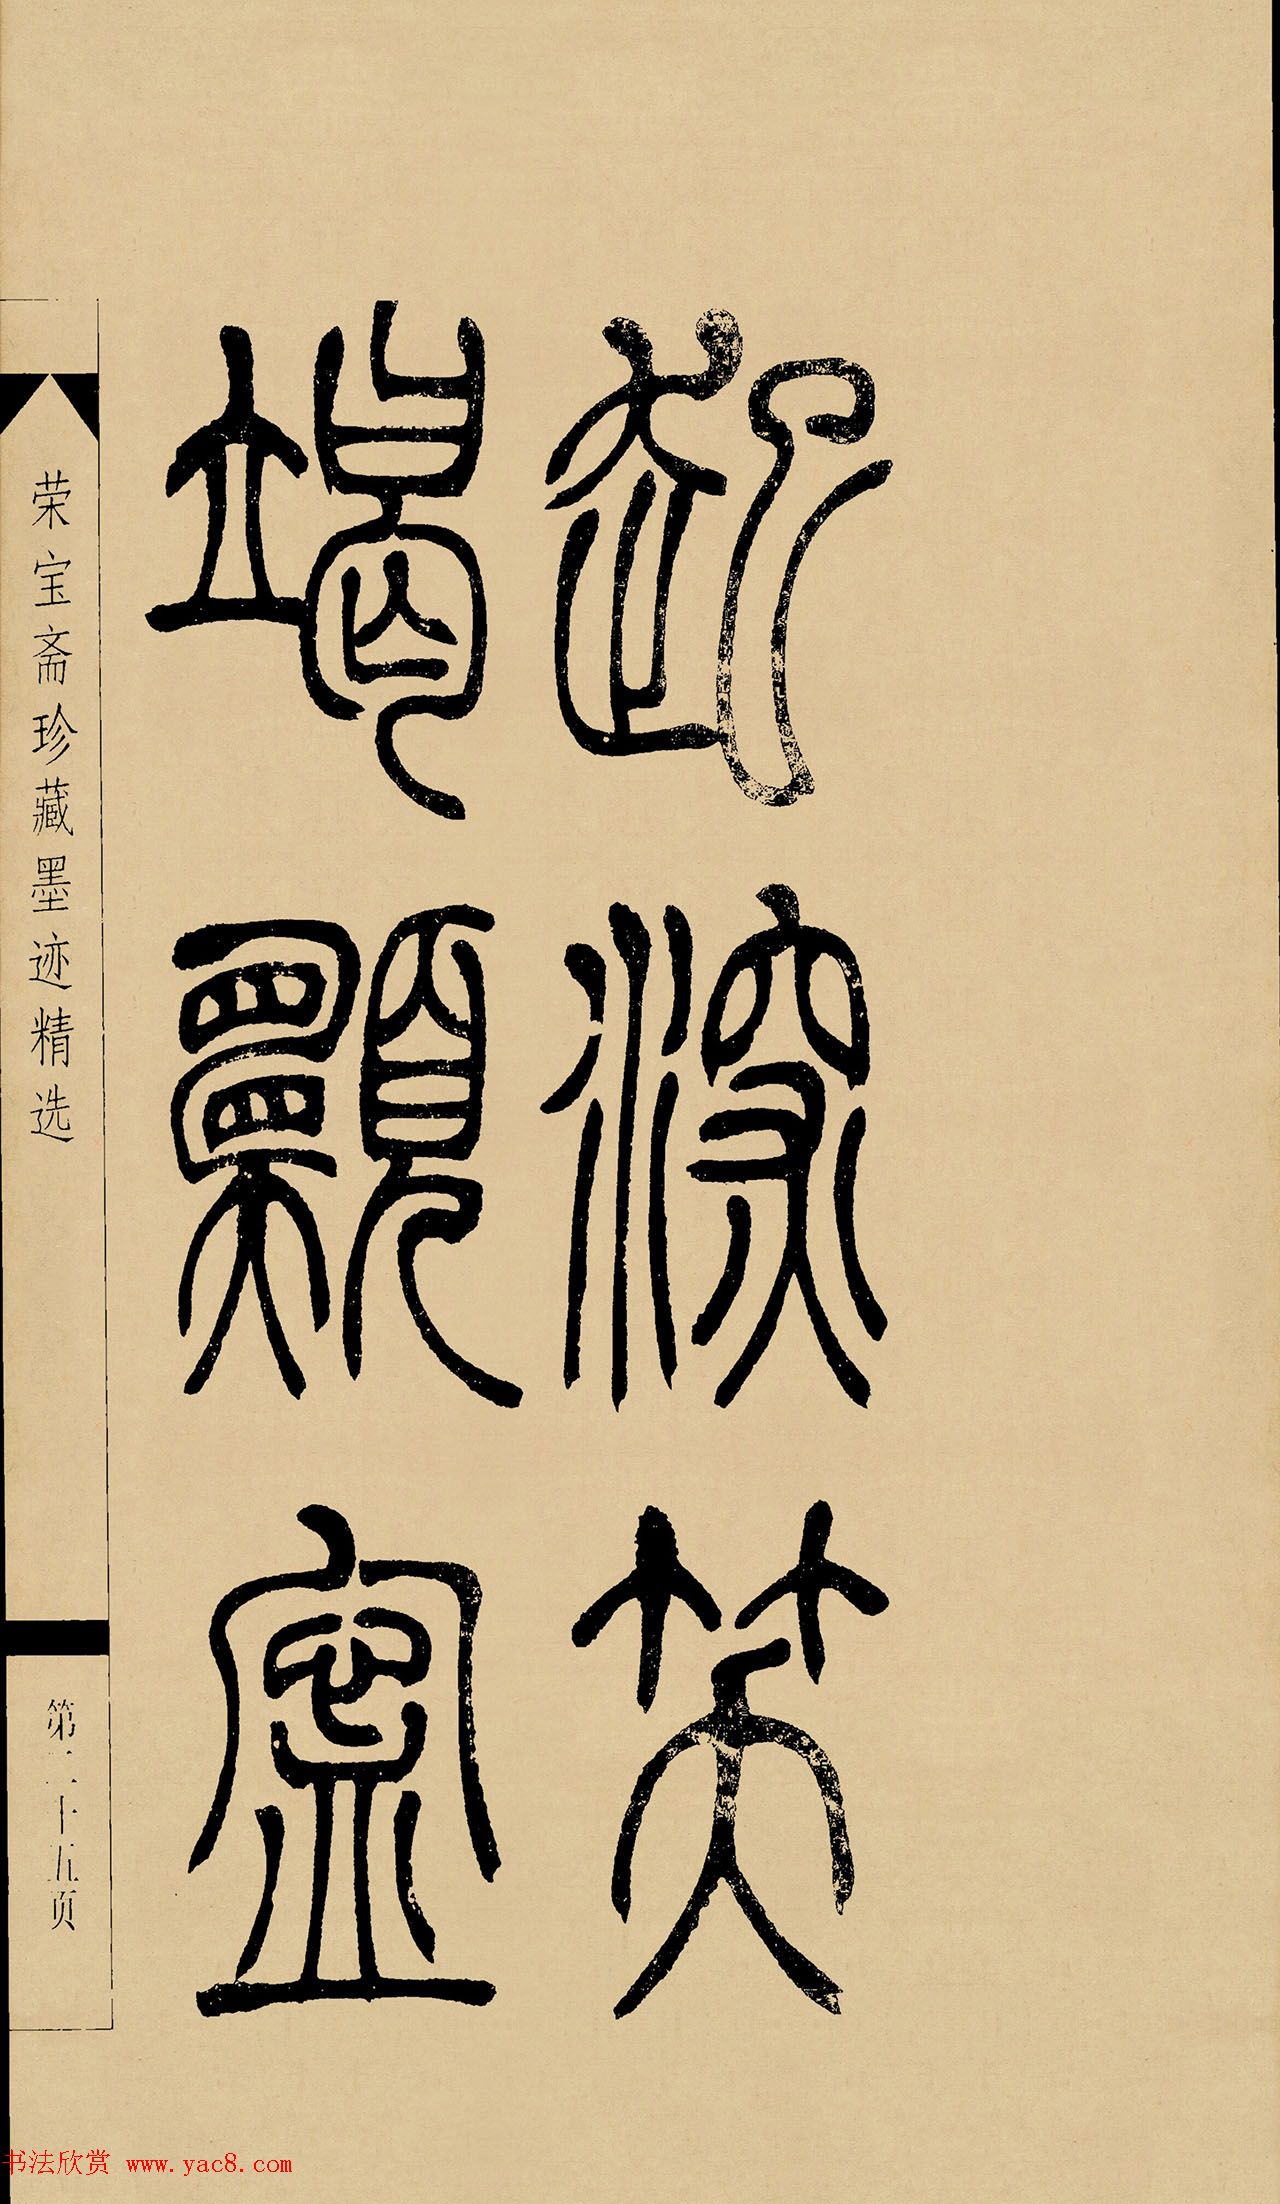 起深笑
竭願寍
荣宝斋珍藏墨迹精选
第二十五页
书法欣赏 www.yac8.com